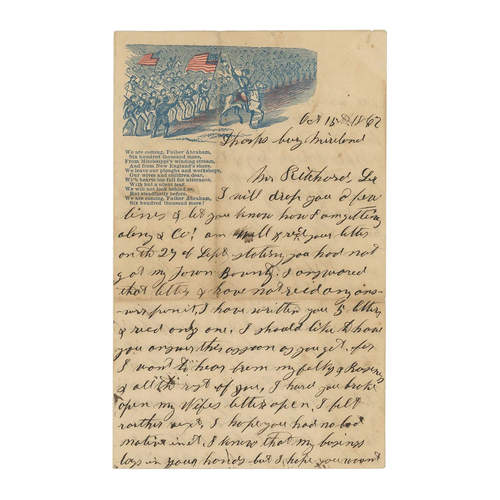 We are coming, Father Abraham,
Six hundred thousand more,
From Mississippi's winding stream,
And from New England's shore.
We leave our ploughs and workshops,
Our wives and children dear,
With hearts too full for utterance,
With but a silent tear.
We will not look behind us,
But steadfastly before.
We are coming, Father Abraham,
Six hundred thousand more!
Oct 15th 1862
bury
Mr Sir
I will drop you a few
lines & let you know how I am getting
along & Co! am well & your letter
on the 27 of Sept stating you had not
got my Town Bounty. I answared
that letter & have not recd any ans-
-wer from it, I have written you 5 letters
& recd only one. I should like to have
you answer this as soon as you get. for
I want to hear from my
& all the rst of you, I hard you broke
open my Wifes letter open, I felt
rather vext, I hope you had no bad
motive in it. I know that my busness
lays in your hands but I hope you wount